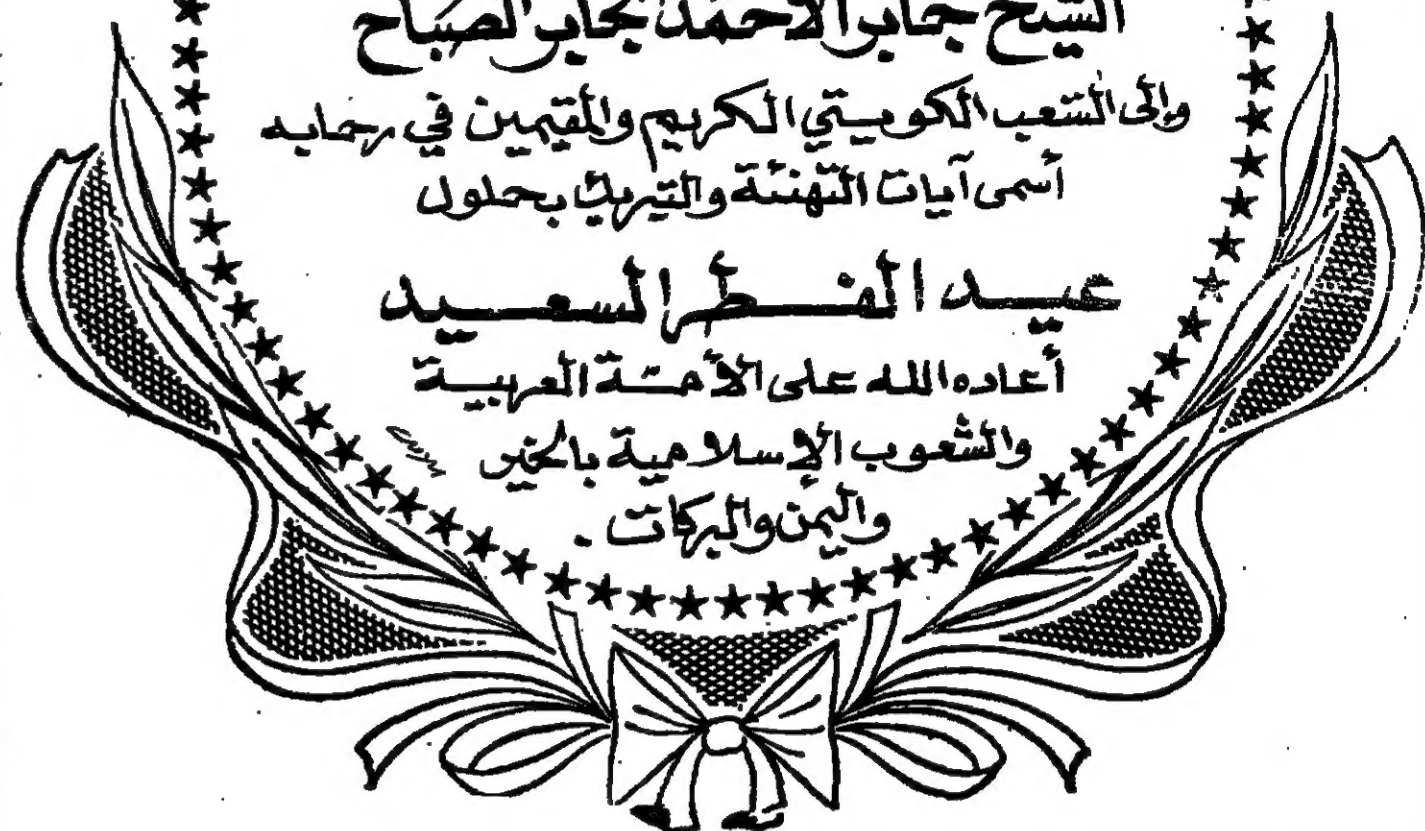 الشيخ جابر الأحمد الجابر الصباح
وإلى الشعب الكويتي الكريم والمقيمين في رحابه
أسمى آيات التهنئة والتبريك بحلول
عيد الفطر السعيد
أعاده الله على الأمة العربية
والشعوب الإسلامية بالخير
واليمن والبركات .